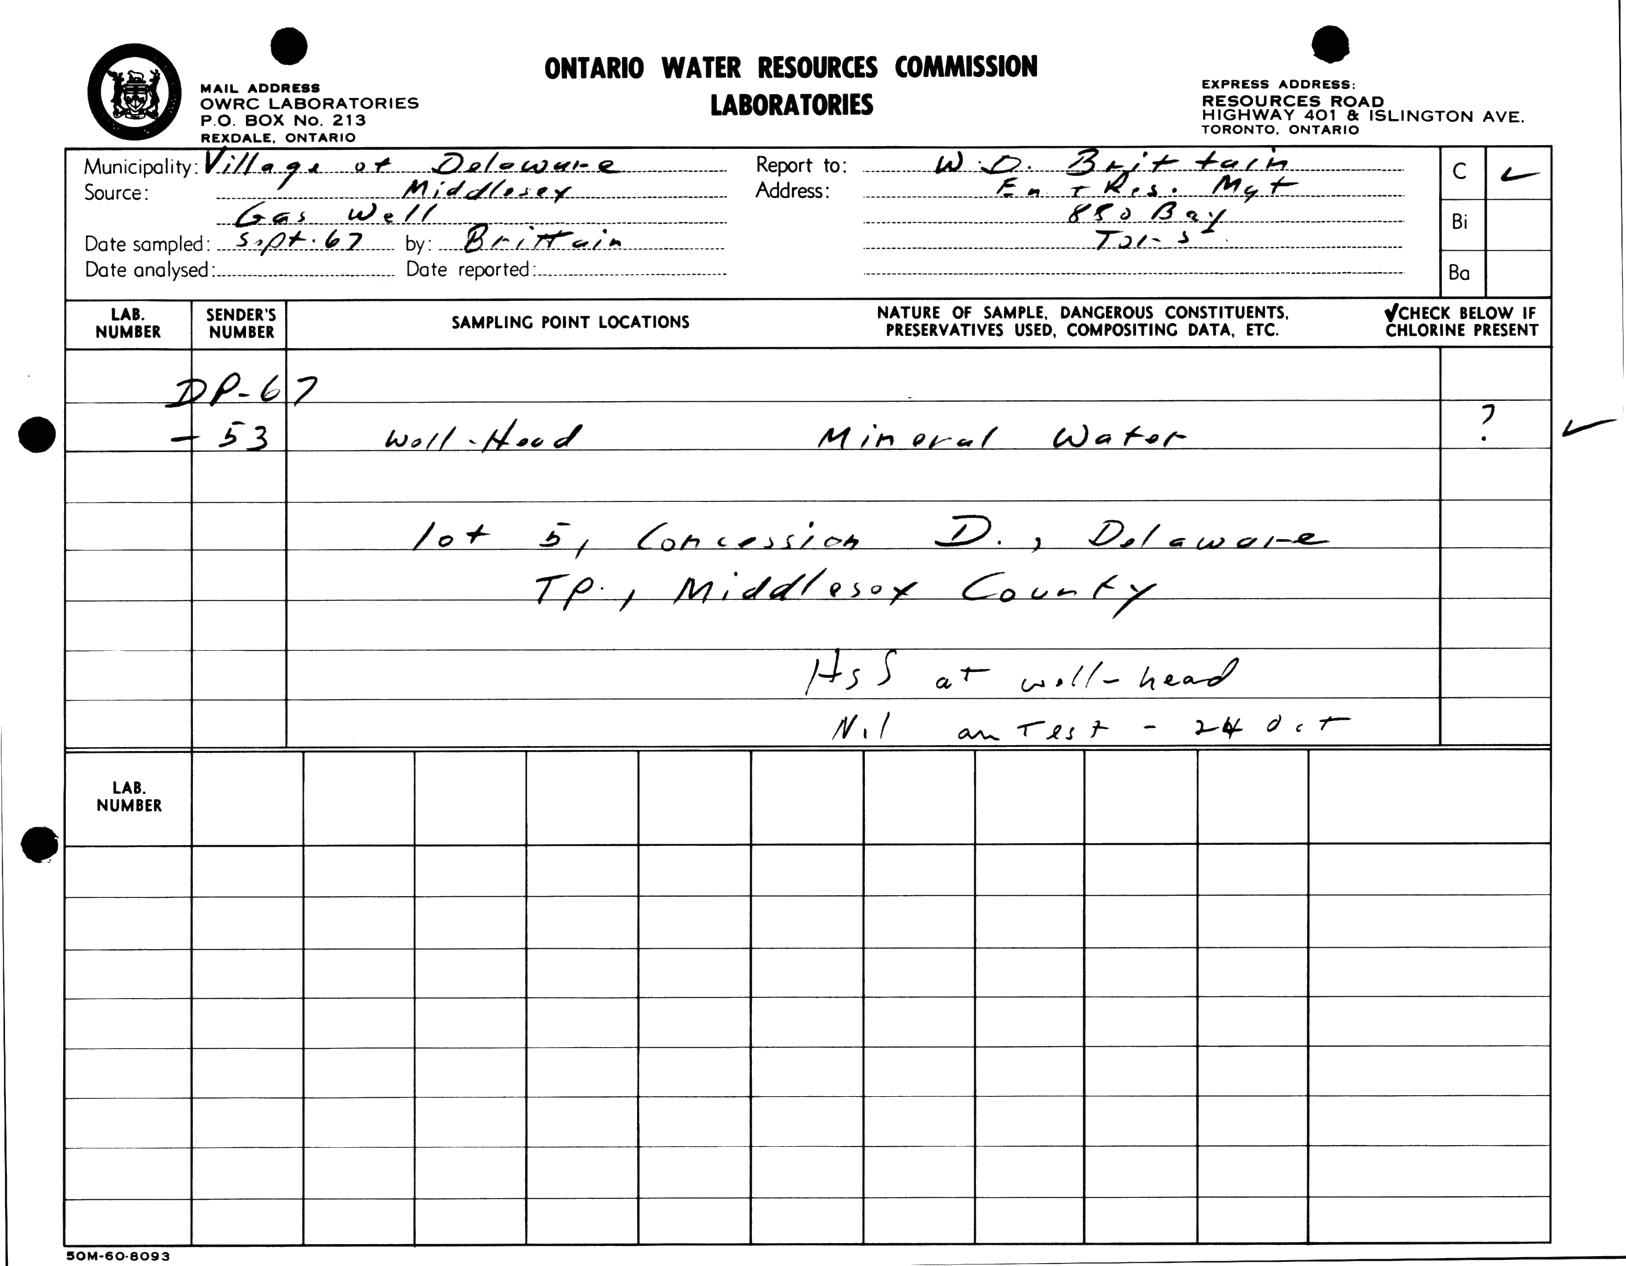 ONTARIO WATER RESOURCES COMMISSION
LABORATORIES
MAIL ADDRESS
OWRC LABORATORIES
P.O. BOX No. 213
REXDALE, ONTARIO
EXPRESS ADDRESS:
RESOURCES ROAD
HIGHWAY 401 & ISLINGTON AVE.
TORONTO, ONTARIO
Municipality: Village of Delaware
Source: Middlesex
Gas Well
Date sampled: Sept. 67 by: Brittain
Date analysed: Date reported:
Report to: W. D. Brittain
Address: En + Res. Mgt
880 Bay
Tor 5
C ✓
Bi
Ba
LAB. NUMBER
SENDER'S NUMBER
SAMPLING POINT LOCATIONS
NATURE OF SAMPLE, DANGEROUS CONSTITUENTS, PRESERVATIVES USED, COMPOSITING DATA, ETC.
✓CHECK BELOW IF CHLORINE PRESENT
DP-67
- 53 Well-Head Mineral Water ? ✓
lot 5, Concession D., Delaware
TP., Middlesex County
HsS at well-head
Nil on Test - 24 Oct
LAB. NUMBER
50M-60-8093